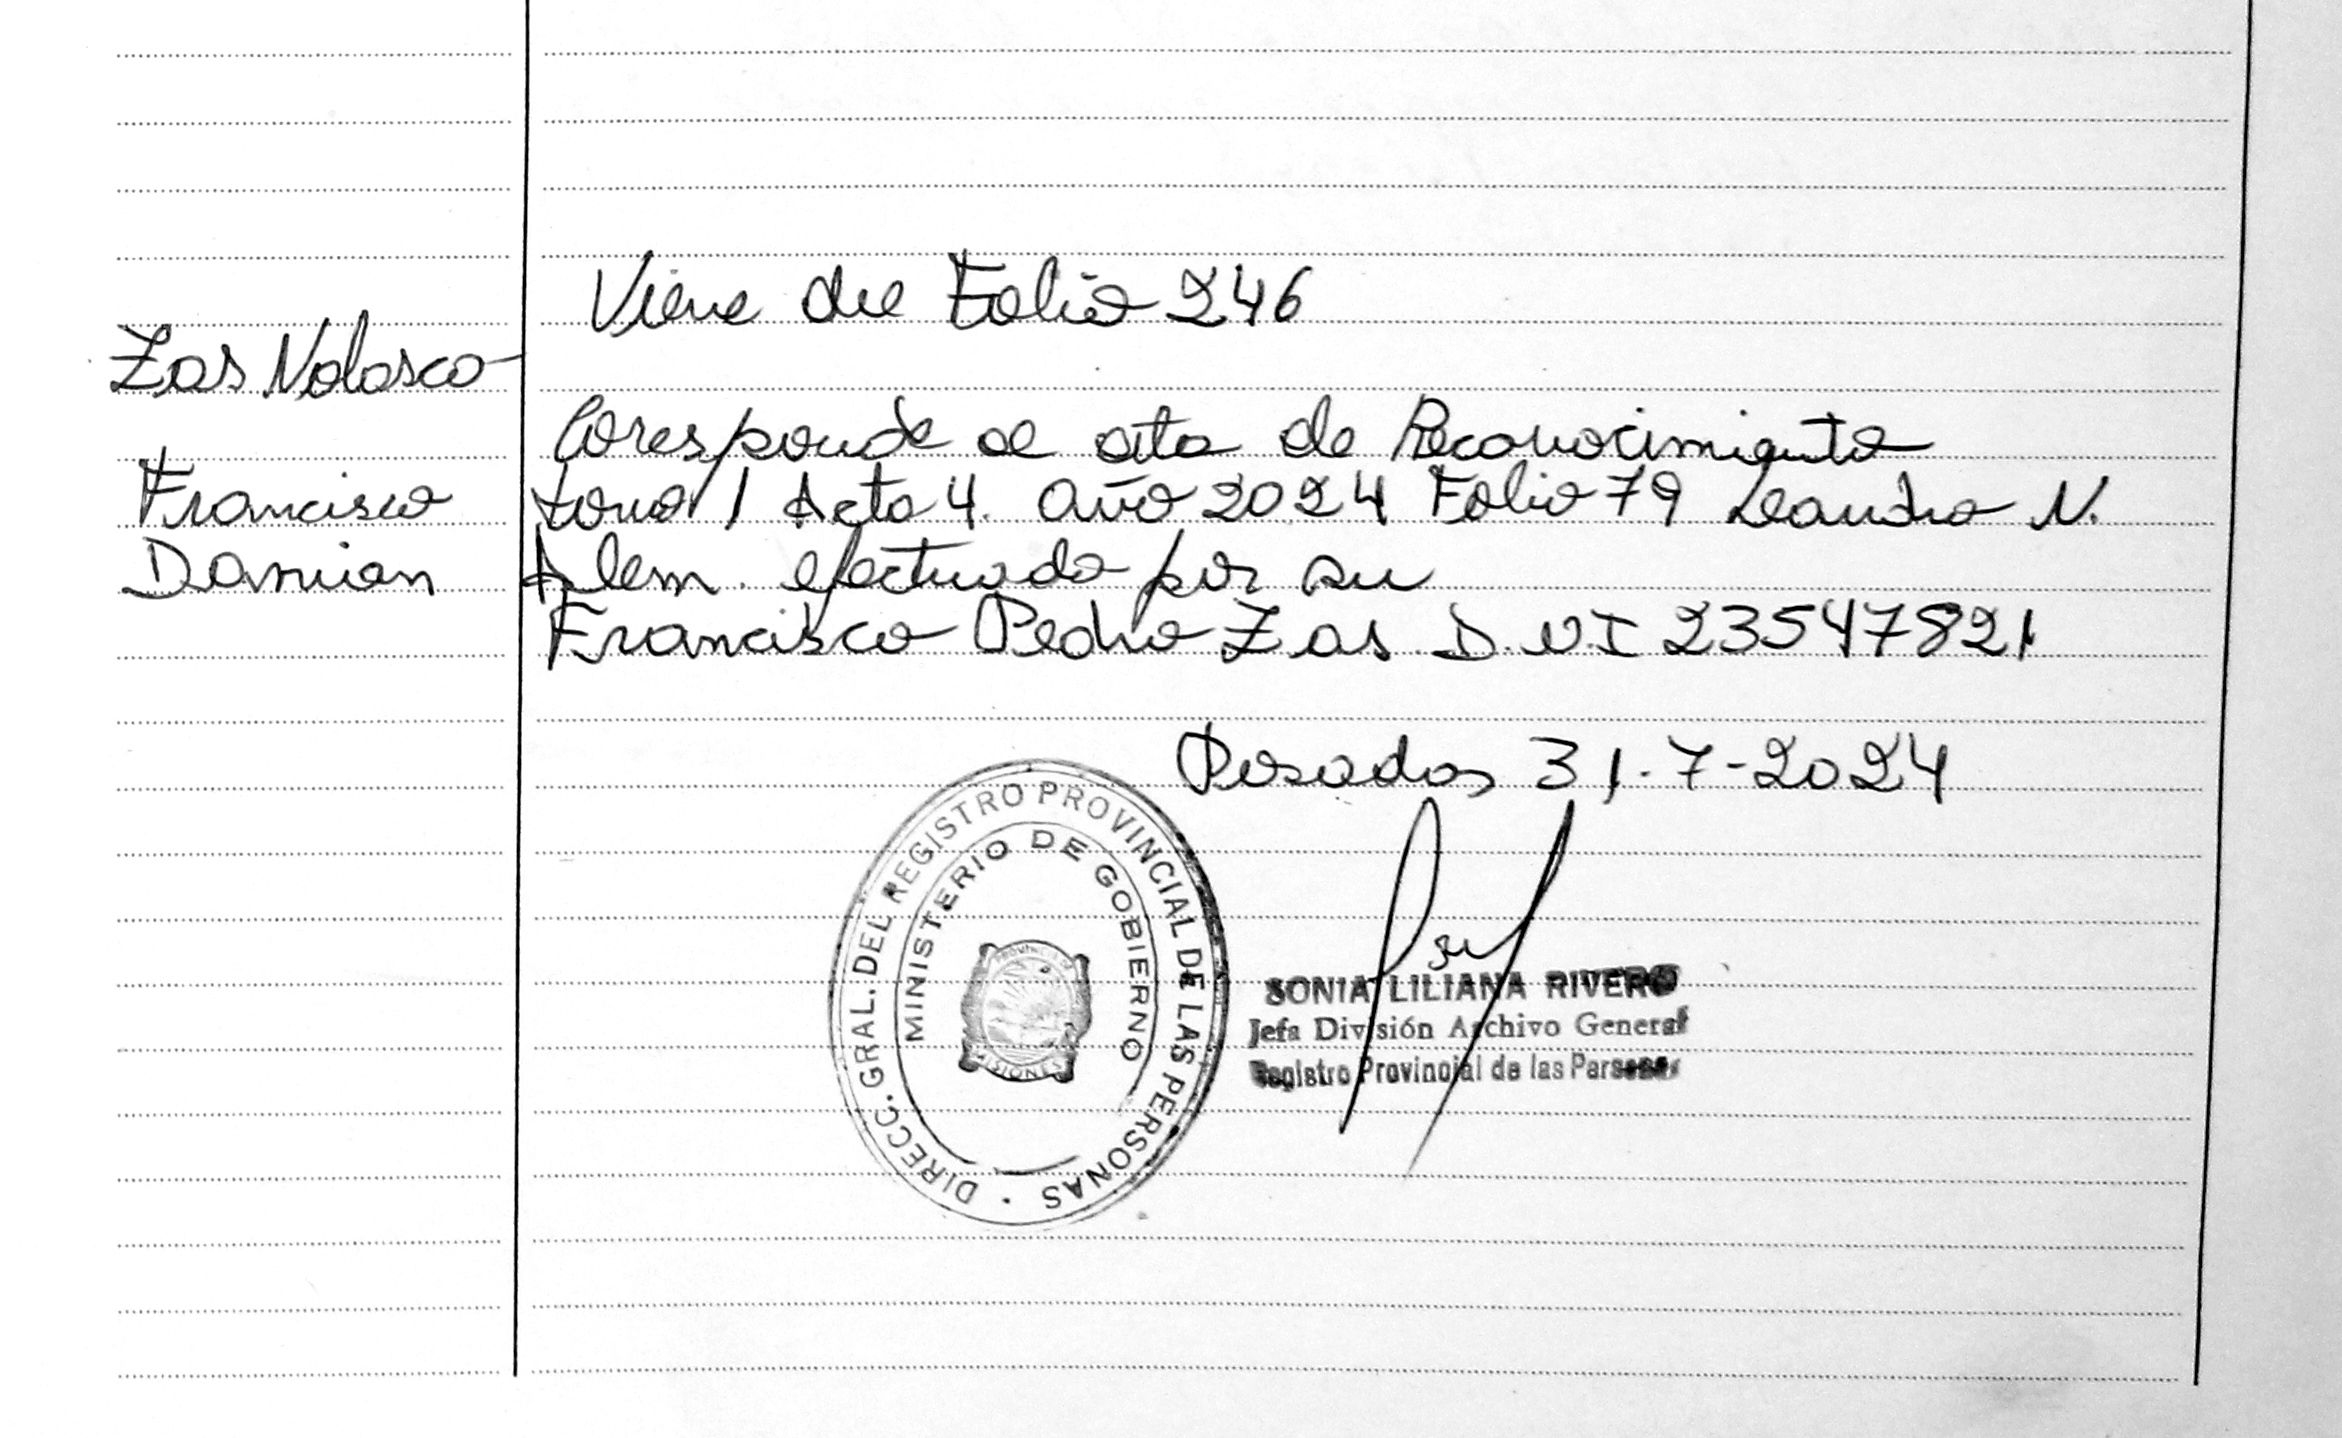 Viene del Folio 246
Zas Nolasco
Francisco
Damian
Corresponde al ata de Reconocimiento
tomo 1 Acta 4. año 2024 Folio 79 Leandro N.
Alem. efectuado por su
Francisco Pedro Zas D.N.I 23547821
Posadas 31-7-2024
DIRECC. GRAL. DEL REGISTRO PROVINCIAL DE LAS PERSONAS
MINISTERIO DE GOBIERNO
PROVINCIA DE
MISIONES
SONIA LILIANA RIVERO
Jefa División Archivo General
Registro Provincial de las Personas